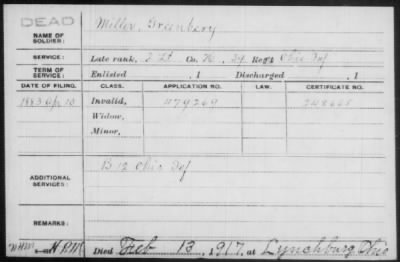 DEAD
NAME OF SOLDIER: Miller, Greenbery
SERVICE: Late rank, 2 Lt Co. K, 24 Reg't Ohio Inf
TERM OF SERVICE: Enlisted , 1 Discharged , 1
DATE OF FILING. CLASS. APPLICATION NO. LAW. CERTIFICATE NO.
1883 Apr 13 Invalid, 479269
Widow,
Minor,
ADDITIONAL SERVICES: B 12 Ohio Inf
REMARKS:
Died Feb 13, 1917, at Lynchburg, Ohio